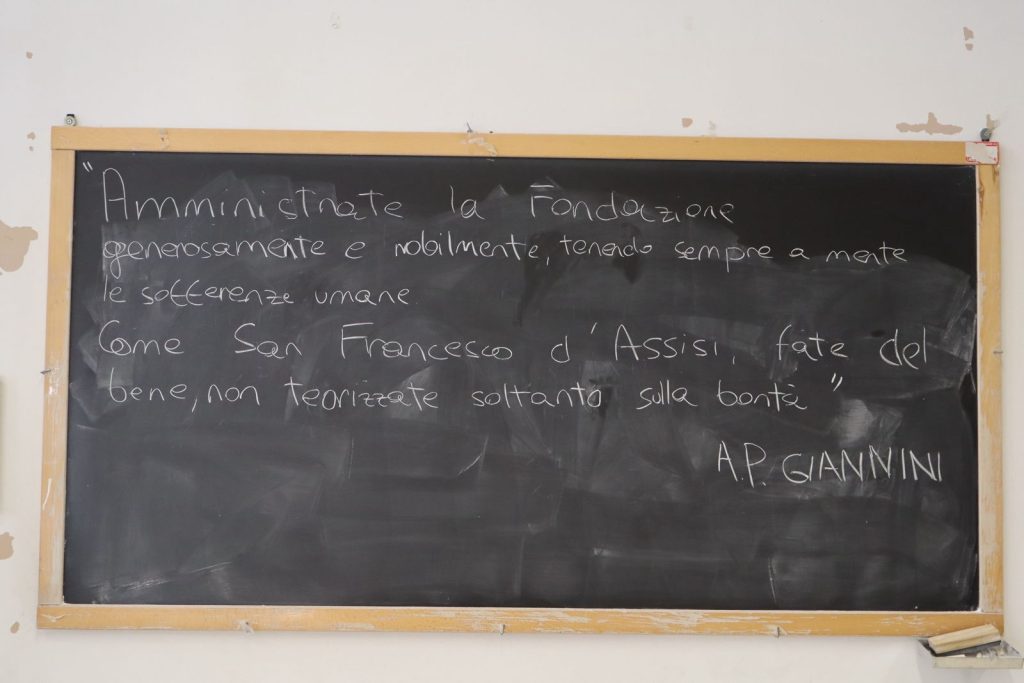 "Amministrate la Fondazione
generosamente e nobilmente, tenendo sempre a mente
le sofferenze umane.
Come San Francesco d'Assisi, fate del
bene, non teorizzate soltanto sulla bontà"
A.P. GIANNINI